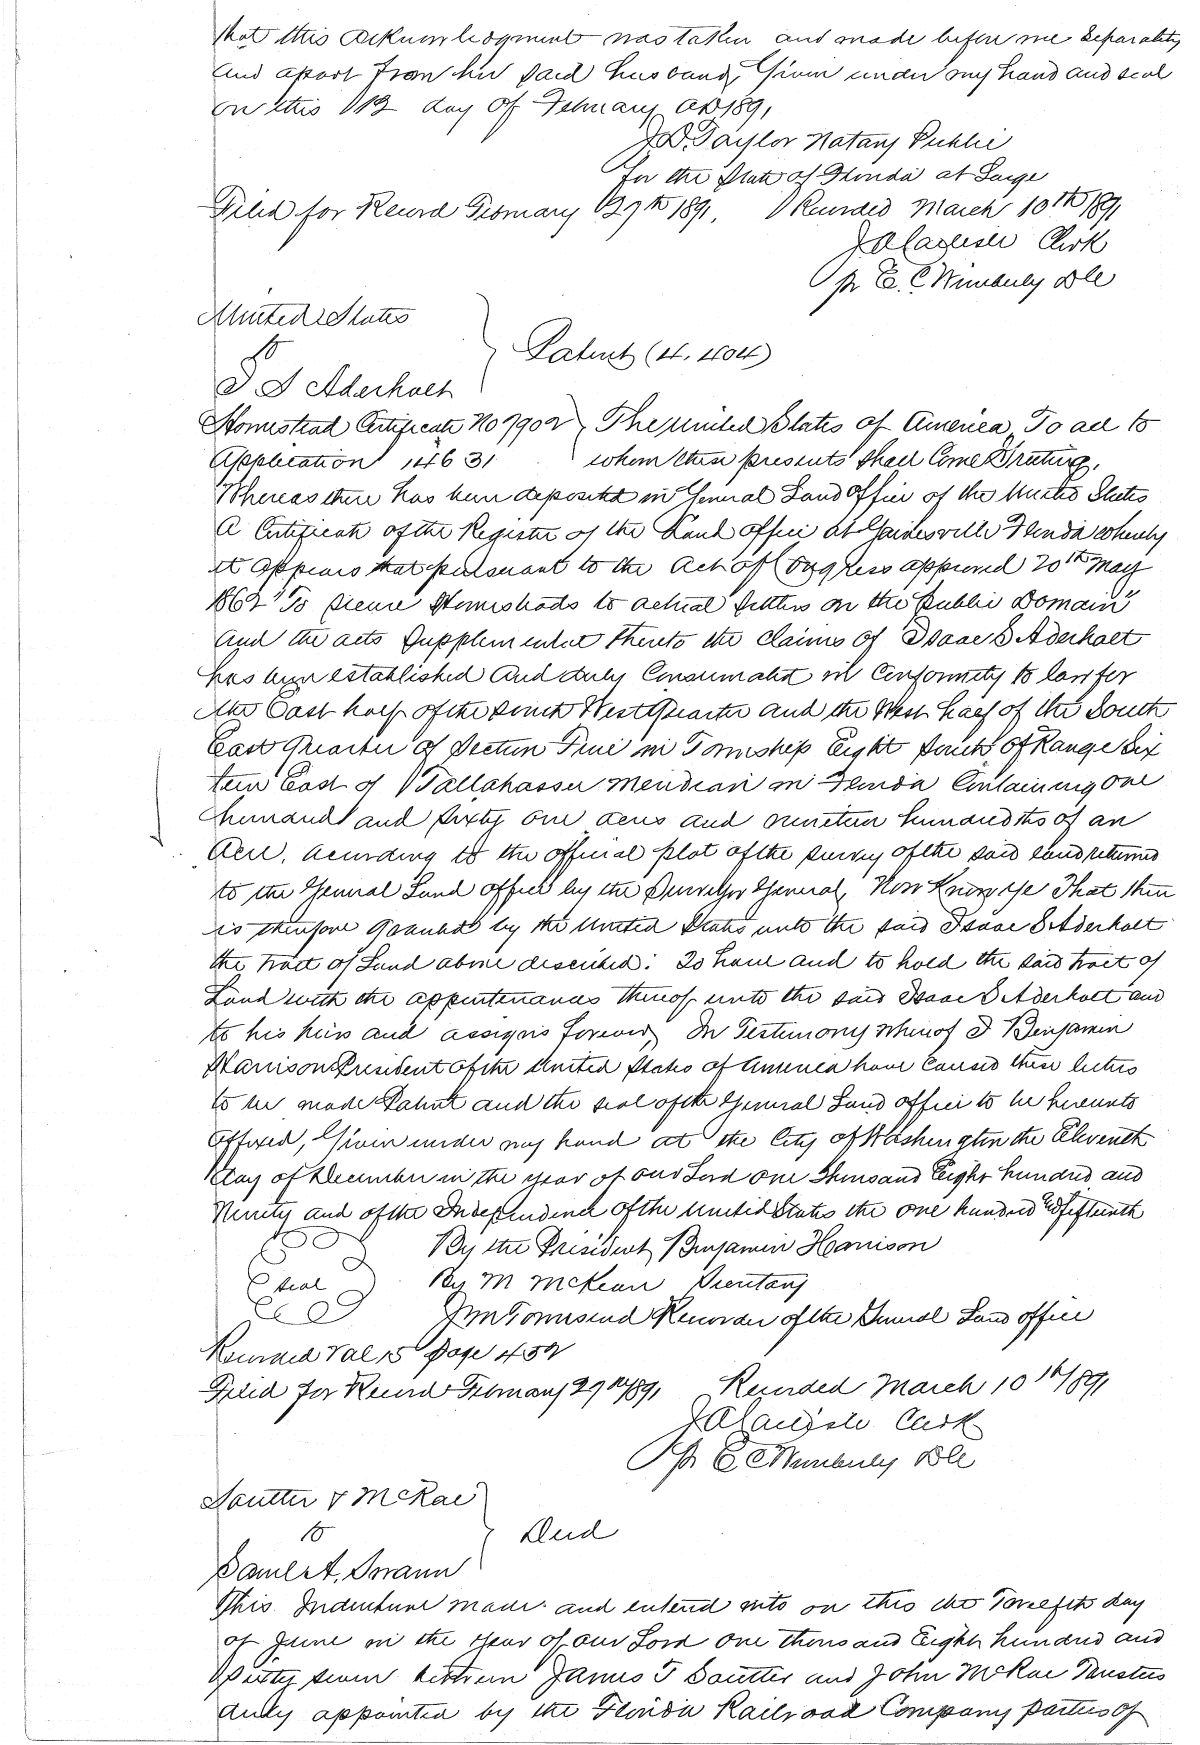 that this acknowledgment was taken and made before me separately
and apart from her said husband, Given under my hand and seal
on this 13 day of February AD 1891
J.D. Taylor Notary Public
for the State of Florida at Large
Filed for Record February 27th 1891, Recorded March 10th 1891
J A Carlisle Clerk
pr E. C Wimberly DC
United States
to
I S Aderholt
Patent (4. 404)
Homestead Certificate No 7902 The united States of America, To all to
Application 14631 whom these presents shall Come Greeting.
Whereas there has been deposited in General Land Office of the United States
A Certificate of the Register of the Land office at Gainesville Florida whereby
it appears that pursuant to the Act of Congress approved 20th May
1862 "To secure Homesteads to actual settlers on the public Domain"
and the acts supplemental thereto the claims of Isaac S Aderholt
has been established and duly Consumated in Conformity to law for
the East half of the South West Quarter and the West half of the South
East Quarter of Section Five in Township Eight South of Range Six
teen East of Tallahassee Meridian in Florida Containing one
hundred and sixty one acres and nineteen hundredths of an
Acre. According to the official plat of the survey of the said land returned
to the General Land office by the Surveyor General, Now Know ye That there
is therefore granted by the United States unto the said Isaac S Aderholt
the tract of Land above described: To have and to hold the said tract of
Land with the appurtenances thereof unto the said Isaac S Aderholt and
to his heirs and assigns forever, In Testimony whereof I Benjamin
Harrison President of the United States of America have caused these letters
to be made Patent and the seal of the General Land office to be hereunto
affixed, Given under my hand at the City of Washington the Eleventh
day of December in the year of our Lord one thousand Eight hundred and
Ninety and of the Independence of the United States the one hundred and fifteenth
By the President, Benjamin Harrison
seal By M McKean Secretary
J M Townsend Recorder of the General Land office
Recorded Vol 15 page 452
Filed for Record February 27th 1891 Recorded March 10th 1891
J A Carlisle Clerk
pr E C Wimberly DC
Soutter & McRae
to
Saml A. Swann
Deed
This Indenture made and entered into on this the Twelfth day
of June in the year of our Lord one thousand Eight hundred and
Sixty seven between James T Soutter and John McRae Trustees
duly appointed by the Florida Railroad Company parties of